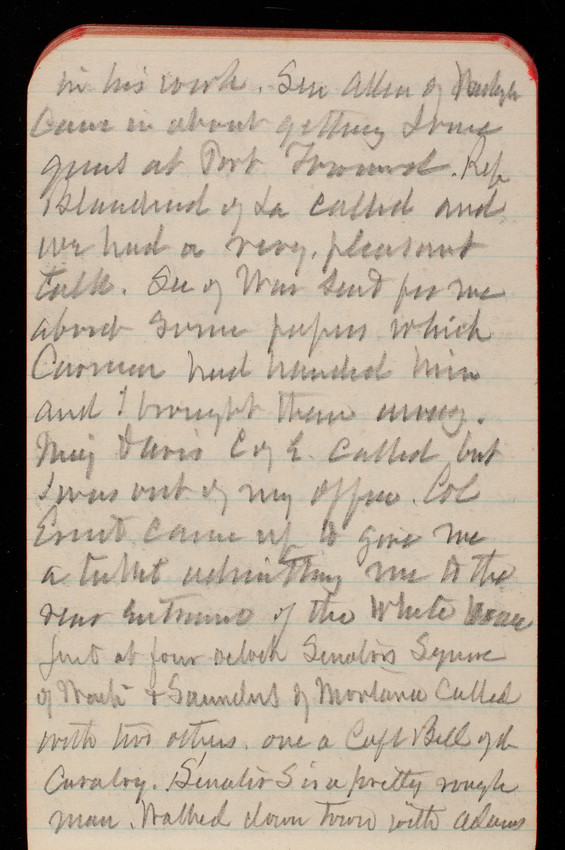 in his work. Sen Allen of Wash
Came in about getting some
guns at Port Townsend. Rep
Blanchard of La called and
we had a very pleasant
talk. Sec of War sent for me
about some papers which
Carman had handed him
and I brought them away.
Maj Davis C of E. called but
I was out of my office. Col
Ernst came up to give me
a ticket admitting me to the
rear entrance of the White House
Just at four oclock Senators Squire
of Wash & Saunders of Montana called
with two others. one a Capt Bell of
Cavalry. Senator S is a pretty rough
man. Walked down town with Adams